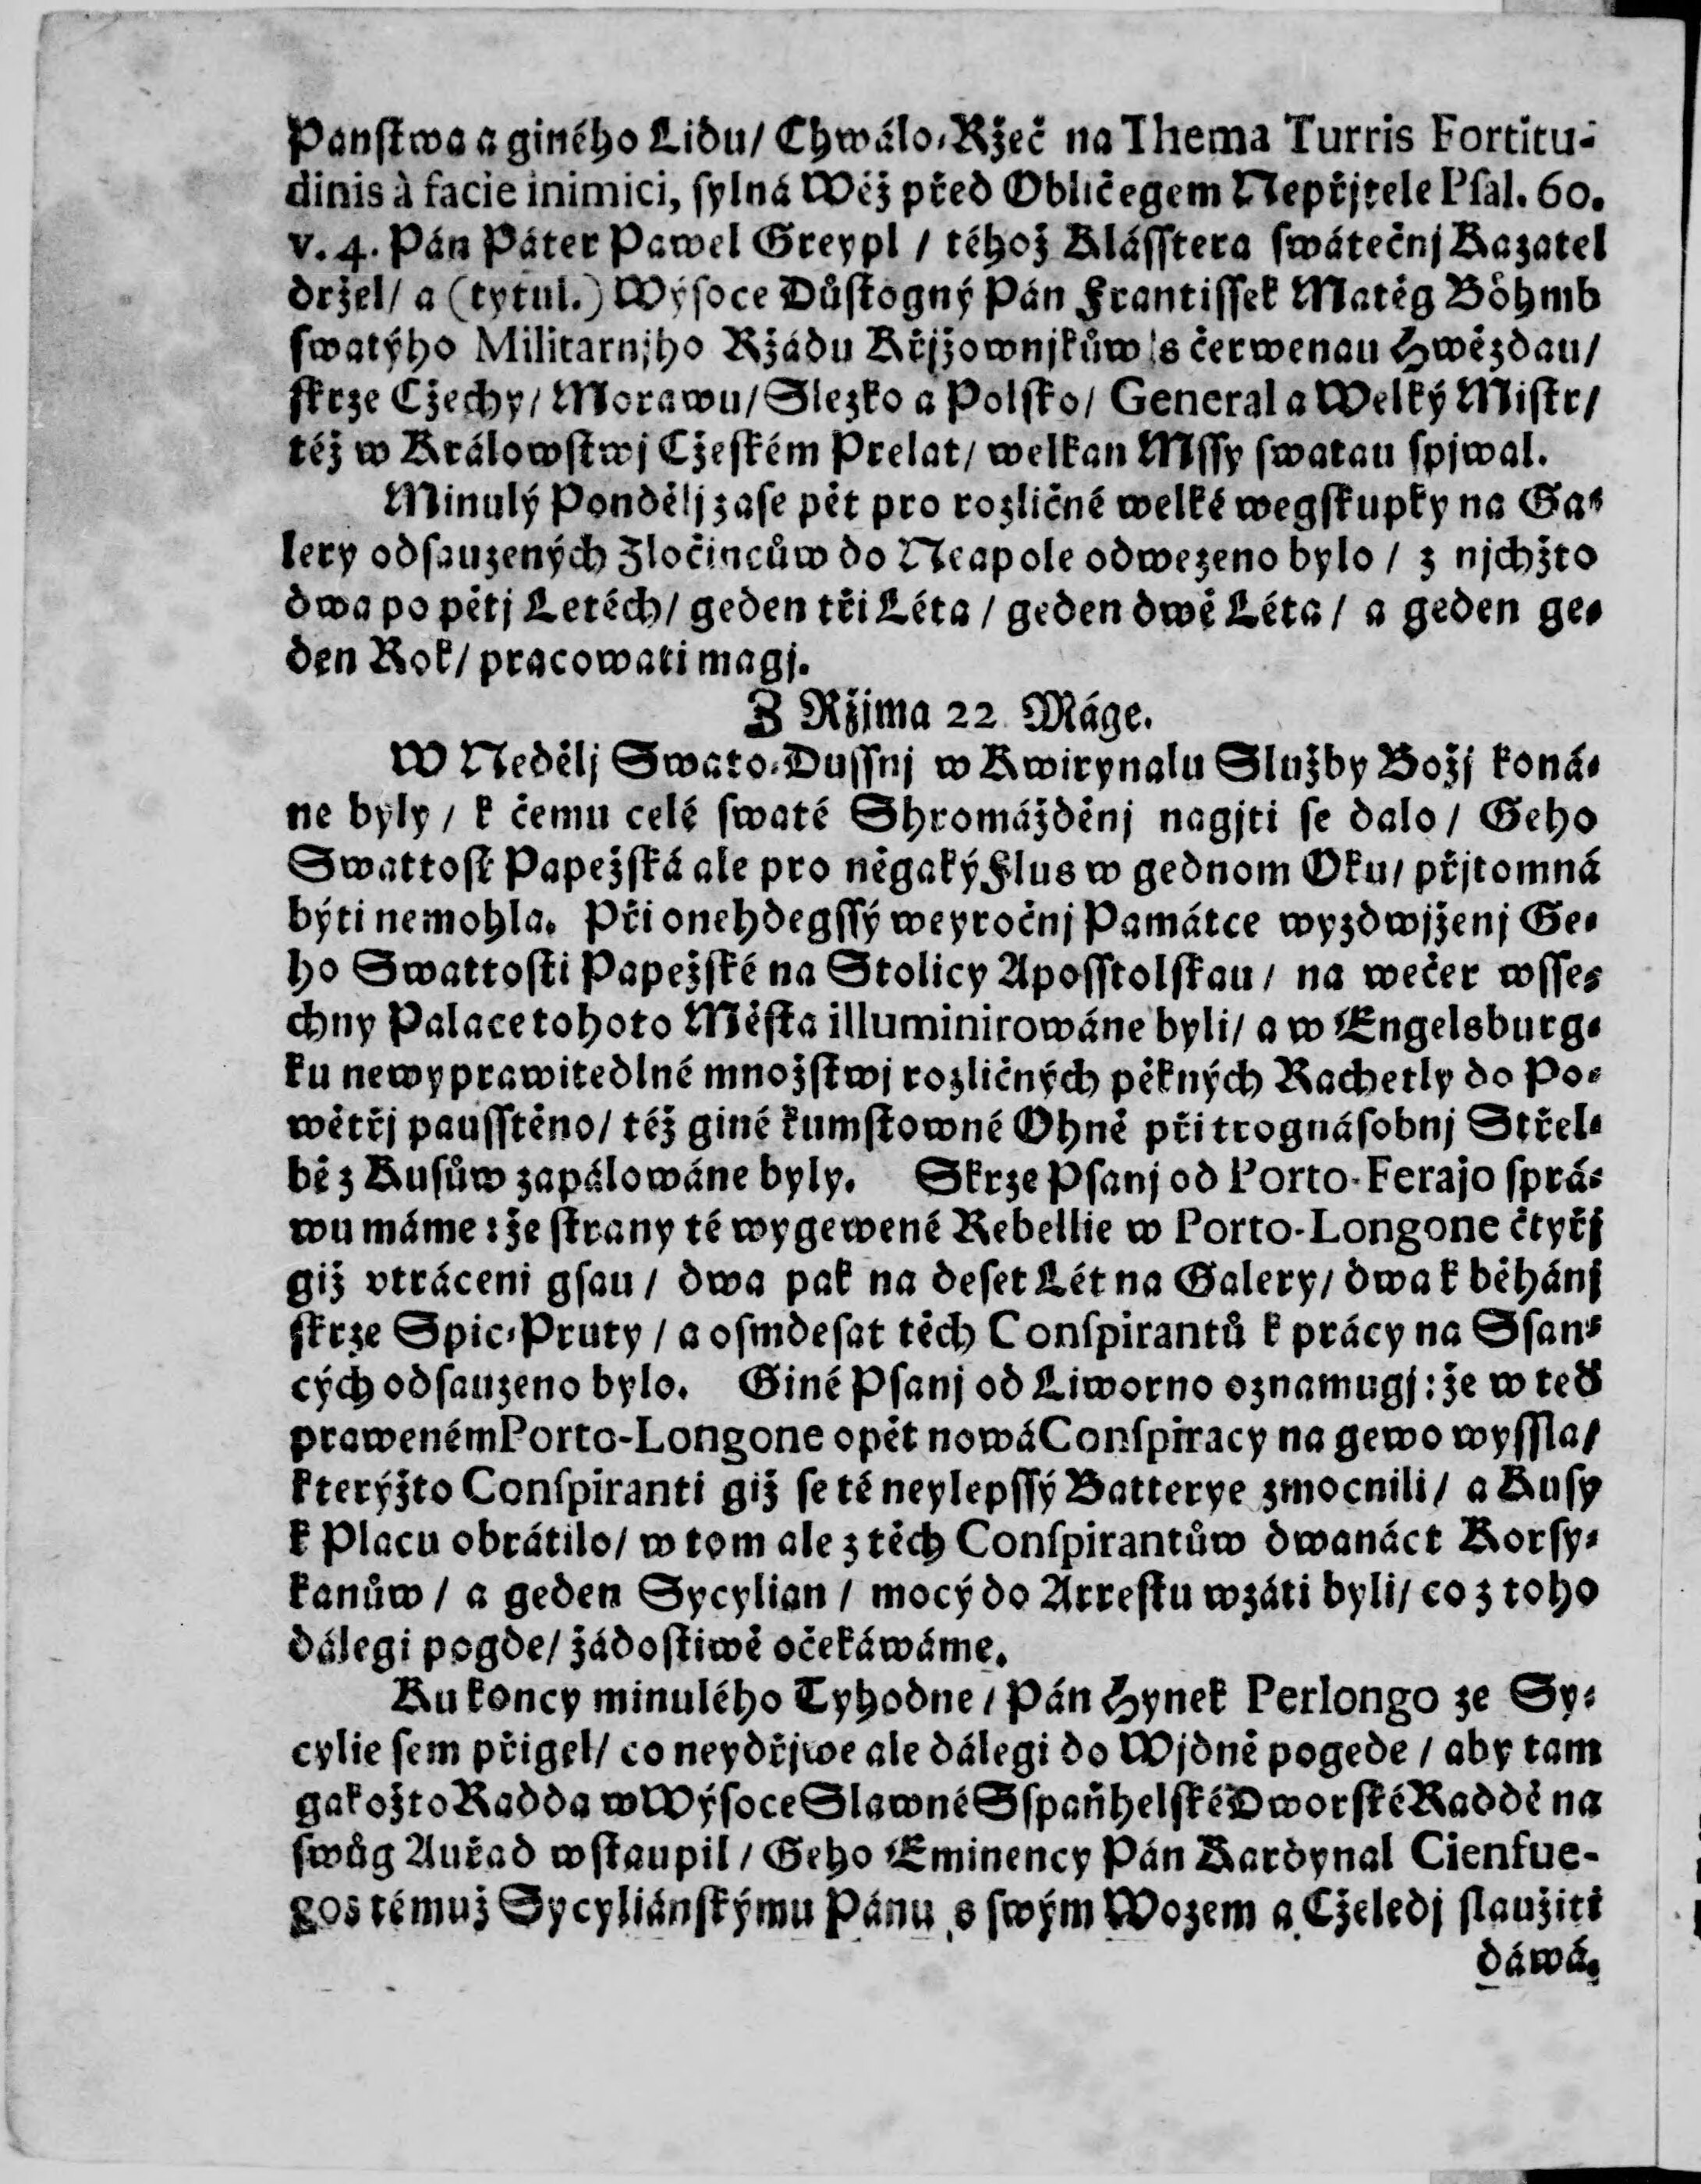 Panſtwa a giného Lidu/ Chwálo-Ržeč na Thema Turris Fortitu-
dinis à facie inimici, ſylná Wěž před Obličegem Nepřjtele Pſal. 60.
v. 4. Pán Páter Pawel Greypl / téhož Kláſſtera ſwátečnj Kazatel
držel/ a (tytul.) Wýſoce Důſtogný Pán Frantiſſek Matěg Böhmb
ſwatýho Militarnjho Ržádu Křjžownjkůw s čerwenau Hwězdau/
ſkrze Cžechy/ Morawu/ Slezko a Polſko/ General a Welký Miſtr/
též w Králowſtwj Cžeſkém Prelat/ welkan Mſſy ſwatau ſpjwal.
Minulý Pondělj zaſe pět pro rozličné welké wegſtupky na Ga-
lery odſauzených Zločincůw do Neapole odwezeno bylo / z njchžto
dwa po pětj Letěch/ geden tři Léta / geden dwě Léta / a geden ge-
den Rok/ pracowati magj.
Z Ržjma 22 Máge.
W Nedělj Swato-Duſſnj w Kwirynalu Služby Božj koná-
ne byly / k čemu celé ſwaté Shromážděnj nagjti ſe dalo / Geho
Swattoſt Papežſká ale pro něgaký Flus w gednom Oku/ přjtomná
býti nemohla. Při onehdegſſý weyročnj Památce wyzdwjženj Ge-
ho Swattoſti Papežſké na Stolicy Apoſſtolſkau / na wečer wſſe-
chny Palace tohoto Měſta illuminirowáne byli/ a w Engelsburg-
ku newyprawitedlné množſtwj rozličných pěkných Rachetly do Po-
wětřj pauſſtěno/ též giné kumſtowné Ohně při trognáſobnj Střel-
bě z Kuſůw zapálowáne byly. Skrze Pſanj od Porto-Ferajo ſprá-
wu máme: že ſtrany té wygewené Rebellie w Porto-Longone čtyřj
giž vtráceni gſau / dwa pak na deſet Lét na Galery/ dwa k běhánj
ſkrze Spic-Pruty / a oſmdeſat těch Conſpirantů k prácy na Sſan-
cých odſauzeno bylo. Giné Pſanj od Liworno oznamugj: že w teď
praweném Porto-Longone opět nowá Conſpiracy na gewo wyſſla/
kterýžto Conſpiranti giž ſe té neylepſſý Batterye zmocnili/ a Kuſy
k Placu obrátilo/ w tom ale z těch Conſpirantůw dwanáct Korſy-
kanůw / a geden Sycylian / mocý do Arreſtu wzáti byli/ co z toho
dálegi pogde/ žádoſtiwě očekáwáme.
Ku koncy minulého Tyhodne / Pán Hynek Perlongo ze Sy-
cylie ſem přigel/ co neydřjwe ale dálegi do Wjdně pogede / aby tam
gakožto Radda w Wýſoce Slawné Sſpaňhelſké Dworſké Raddě na
ſwůg Auřad wſtaupil / Geho Eminency Pán Kardynal Cienfue-
gos témuž Sycyliánſkýmu Pánu s ſwým Wozem a Cželedj ſlaužiti
dáwá.